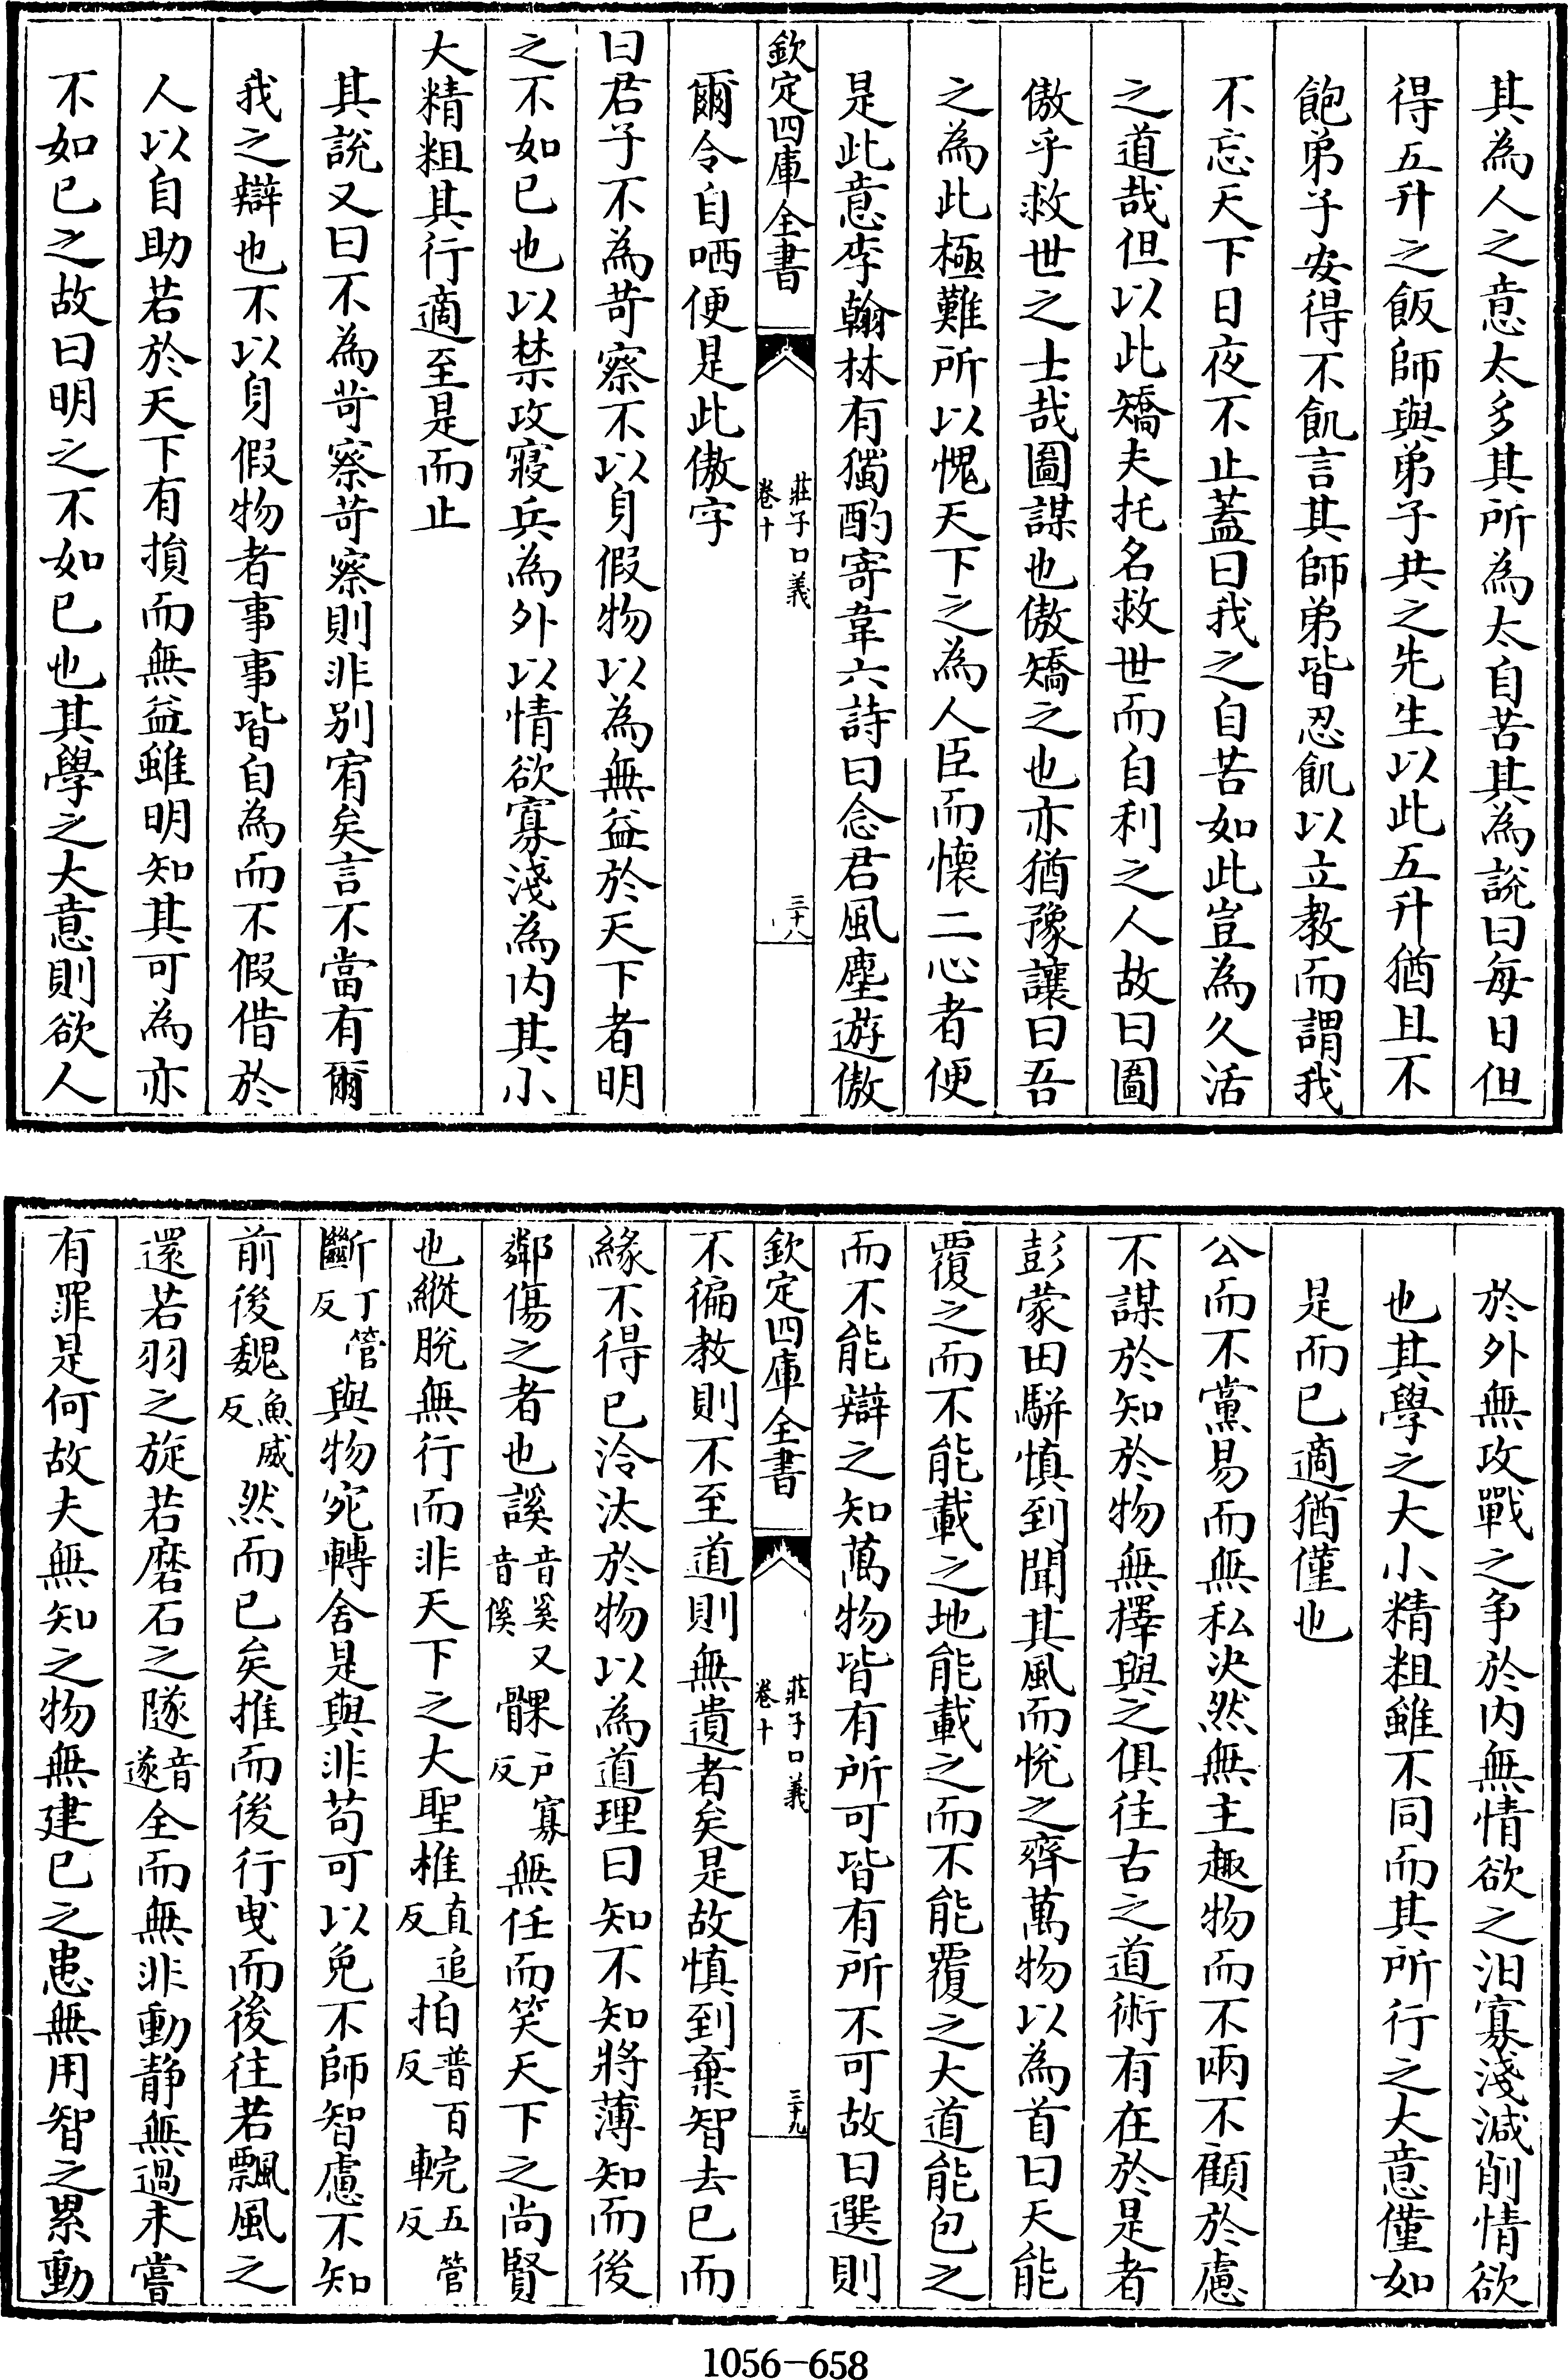 其為人之意太多其所為太自苦其為說曰每日但
得五升之飯師與弟子共之先生以此五升猶且不
飽弟子安得不飢言其師弟皆忍飢以立教而謂我
不忘天下日夜不止蓋曰我之自苦如此豈為久活
之道哉但以此矯夫托名救世而自利之人故曰圖
傲乎救世之士哉圖謀也傲矯之也亦猶豫讓曰吾
之為此極難所以愧天下之為人臣而懷二心者便
是此意李翰林有獨酌寄韋六詩曰念君風塵遊傲
欽定四庫全書
莊子口義
卷十
三十八
爾令自哂便是此傲字
曰君子不為苛察不以身假物以為無益於天下者明
之不如已也以禁攻寢兵為外以情欲寡淺為内其小
大精粗其行適至是而止
其說又曰不為苛察苛察則非别宥矣言不當有爾
我之辯也不以身假物者事事皆自為而不假借於
人以自助若於天下有損而無益雖明知其可為亦
不如已之故曰明之不如已也其學之大意則欲人
於外無攻戰之争於内無情欲之汨寡淺減削情欲
也其學之大小精粗雖不同而其所行之大意僅如
是而已適猶僅也
公而不黨易而無私决然無主趣物而不兩不顧於慮
不謀於知於物無擇與之俱往古之道術有在於是者
彭蒙田駢慎到聞其風而悅之齊萬物以為首曰天能
覆之而不能載之地能載之而不能覆之大道能包之
而不能辯之知萬物皆有所可皆有所不可故曰選則
欽定四庫全書
莊子口義
卷十
三十九
不徧教則不至道則無遺者矣是故慎到棄智去已而
緣不得已泠汰於物以為道理曰知不知將薄知而後
鄰傷之者也謑音奚又音傒髁戸寡反無任而笑天下之尚賢
也縱脫無行而非天下之大聖椎直追反拍普百反輐五管反
斷丁管反與物宛轉舍是與非苟可以免不師智慮不知
前後魏魚威反然而已矣推而後行曳而後往若飄風之
還若羽之旋若磨石之隧音遂全而無非動静無過未嘗
有罪是何故夫無知之物無建已之患無用智之累動
1056-658